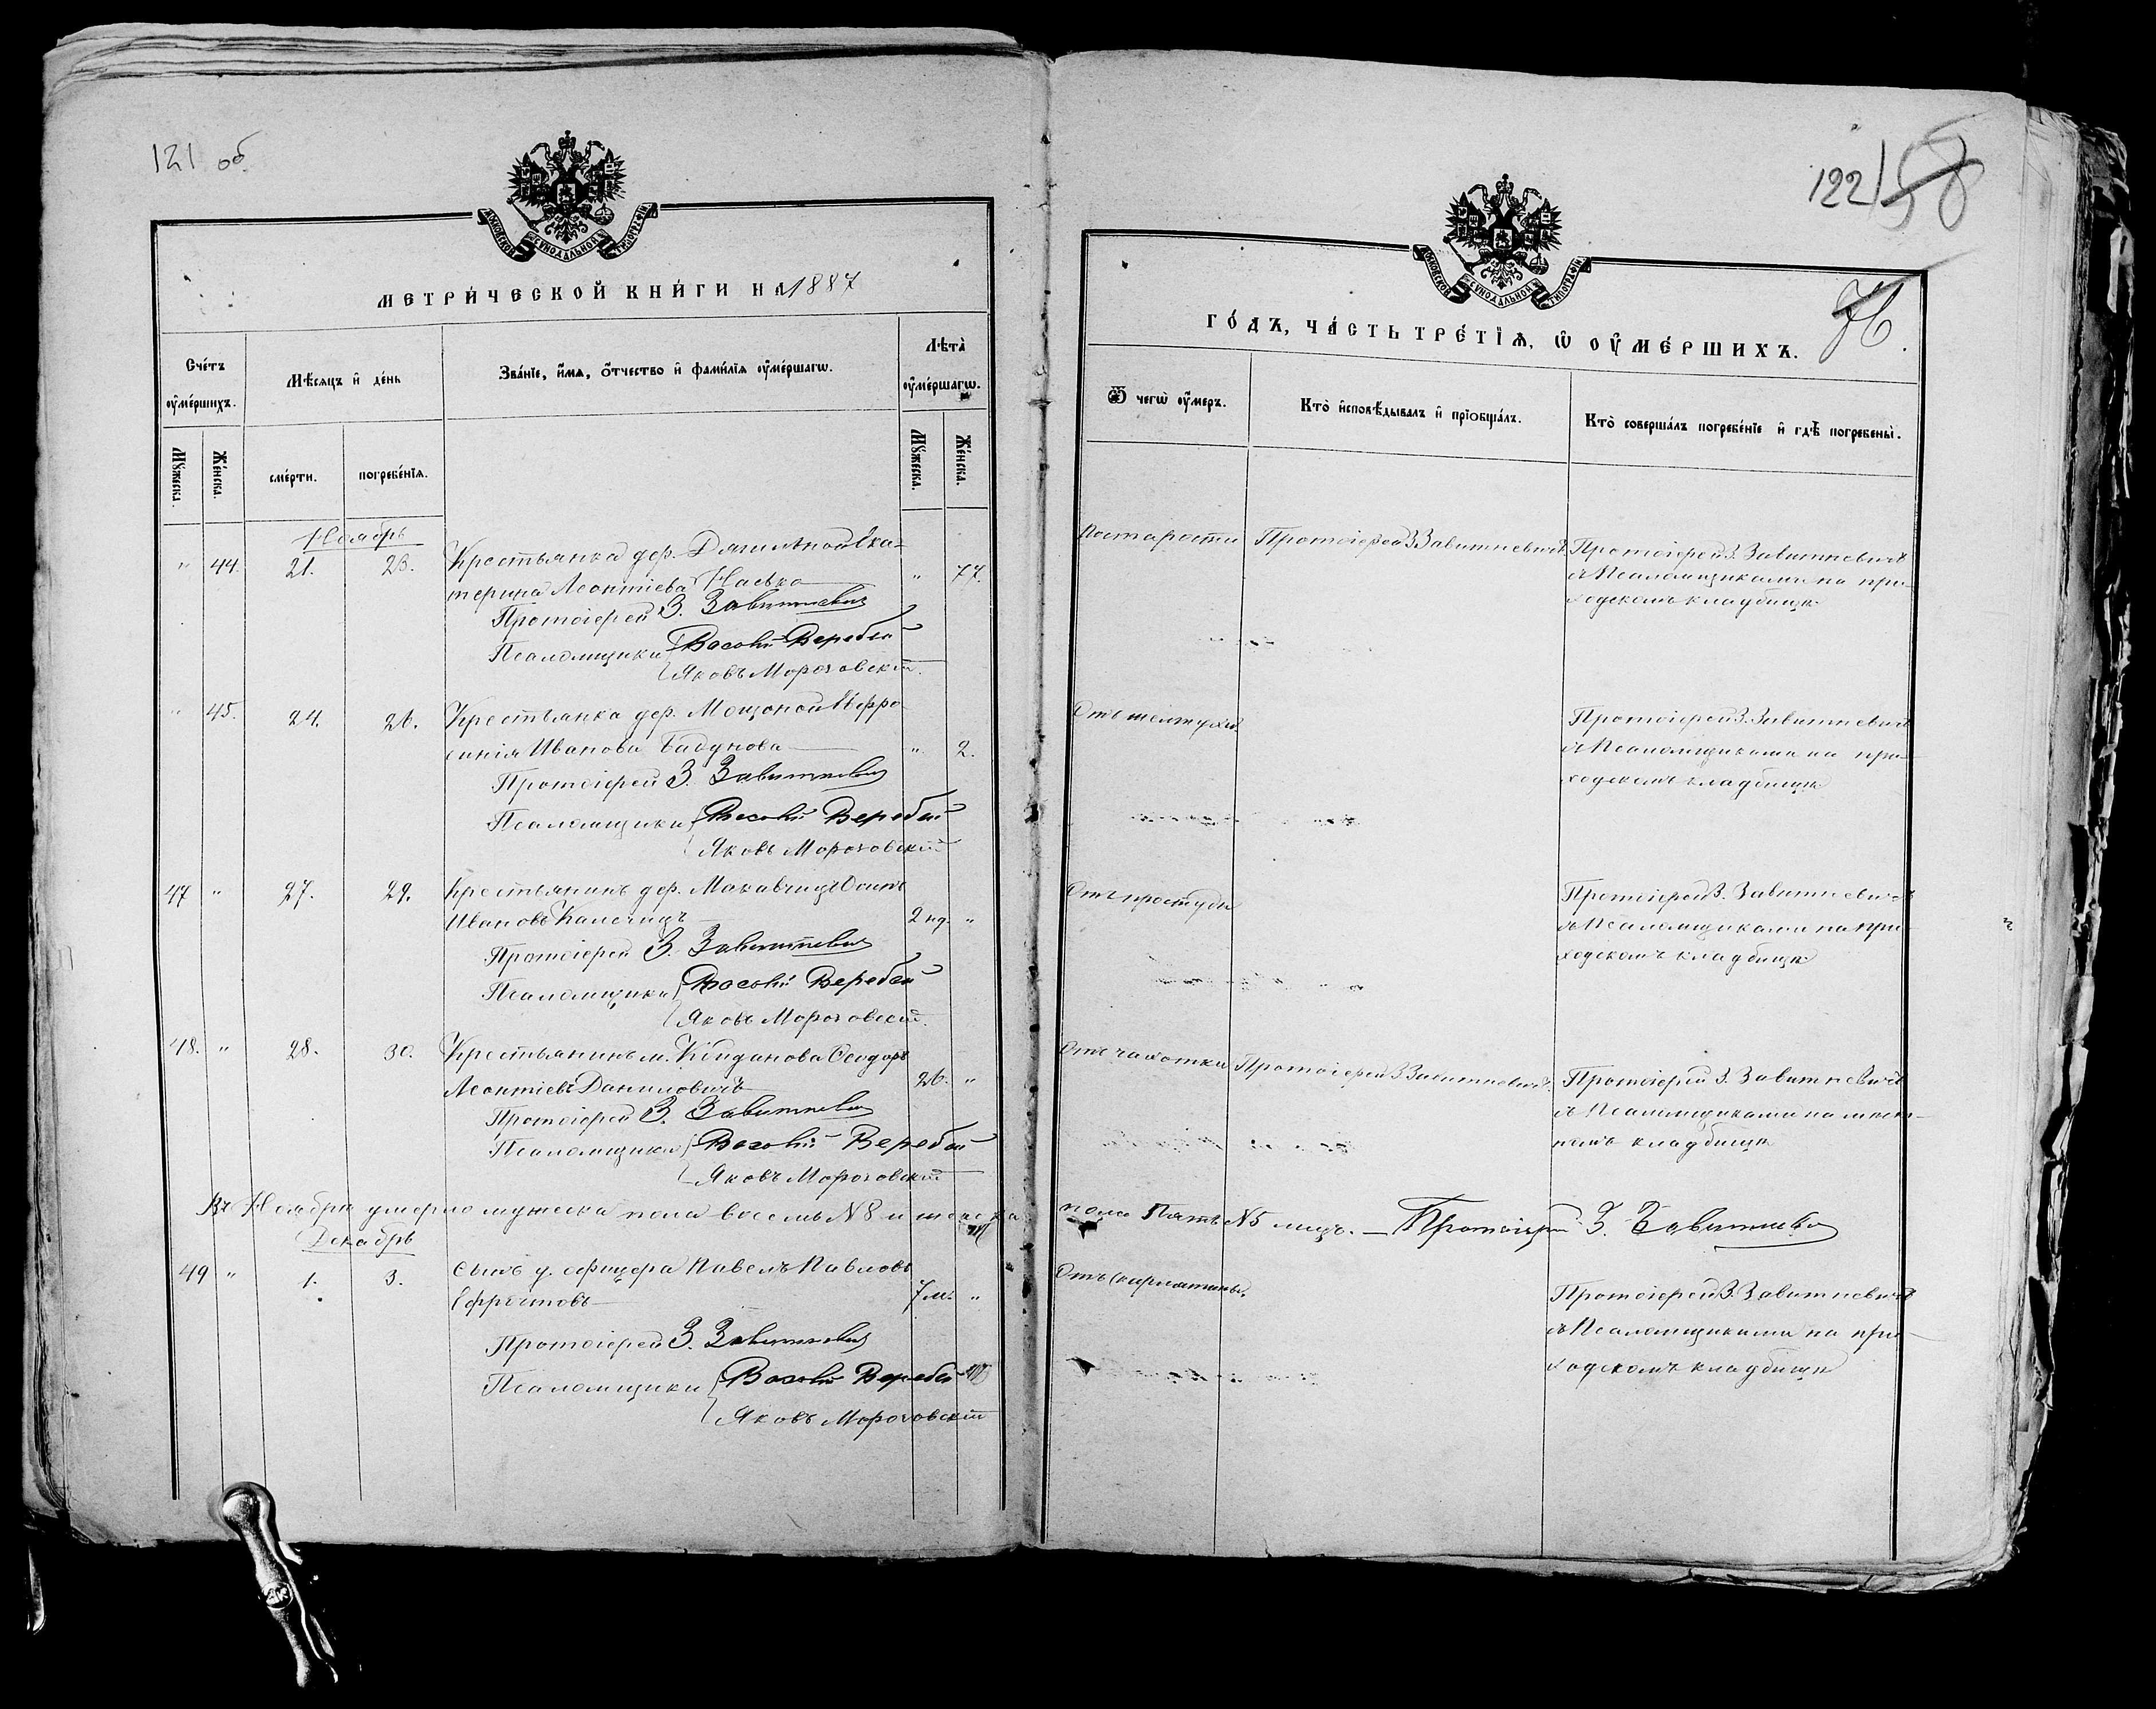 121 об.
МОСКОВСКОЙ СѴНОДАЛЬНОЙ ТИПОГРАФІИ
МЕТРИ́ЧЕСКОЙ КНИ́ГИ НА 1887
Сче́тъ оу҆ме́ршихъ.
Мѣ́сяцъ и҆ де́нь
Зва́нїе, и҆́мя, ѻ҆́тчество и҆ фами́лїя оу҆ме́ршагѡ.
Лѣ̑та оу҆ме́ршагѡ.
Мꙋ́жеска.
Же́нска.
сме́рти.
погребе́нїѧ.
Мꙋ́жеска.
Же́нска.
Ноябрь
" 44. 21. 23. Крестьянка дер. Ека-
терина Леонтіева " 77.
Протоіерей З. Завитневичъ
Псаломщики Веребей
Яковъ Морозовскій
" 45. 24. 26. Крестьянка дер. Евфро
синія Иванова Бабунова " 2.
Протоіерей З. Завитневичъ
Псаломщики Веребей
Яковъ Морозовскій
47 " 27. 29. Крестьянинъ дер. Осипъ
Ивановъ 2 нд. "
Протоіерей З. Завитневичъ
Псаломщики Веребей
Яковъ Морозовскій
48. " 28. 30. Крестьянинъ м. Койданова Ѳеодоръ
Леонтіевъ Даниловичъ 26. "
Протоіерей З. Завитневичъ
Псаломщики Веребей
Яковъ Морозовскій
Въ Ноябрѣ умерло мужеска пола восемь №8 и женска
Декабрь
49 " 1. 3. Сынъ у. офицера Павелъ Павловъ
7 м. "
Протоіерей З. Завитневичъ
Псаломщики Веребей
Яковъ Морозовскій
122 158
МОСКОВСКОЙ СѴНОДАЛЬНОЙ ТИПОГРАФІИ
76.
ГО́ДЪ, ЧА́СТЬ ТРЕ́ТЇѦ, Ѡ҆ ОУ҆МЕ́РШИХЪ.
Ѿ чегѡ̀ оу҆́меръ.
Кто̀ и҆сповѣ́дывалъ и҆ прїобща́лъ.
Кто̀ соверша́лъ погребе́нїе и҆ гдѣ̀ погребены̀.
По старости Протоіерей З Завитневичъ Протоіерей З. Завитневичъ
съ Псаломщиками на при-
ходскомъ кладбищѣ
Протоіерей З. Завитневичъ
съ Псаломщиками на при-
ходскомъ кладбищѣ
Отъ простуды Протоіерей З. Завитневичъ
съ Псаломщиками на при-
ходскомъ кладбищѣ
Отъ чахотки Протоіерей З Завитневичъ. Протоіерей З. Завитневичъ
съ Псаломщиками на мѣст-
номъ кладбищѣ
пола Пять №5 лицъ. — Протоіерей З. Завитневичъ
Отъ скарлатины. Протоіерей З. Завитневичъ
съ Псаломщиками на при-
ходскомъ кладбищѣ